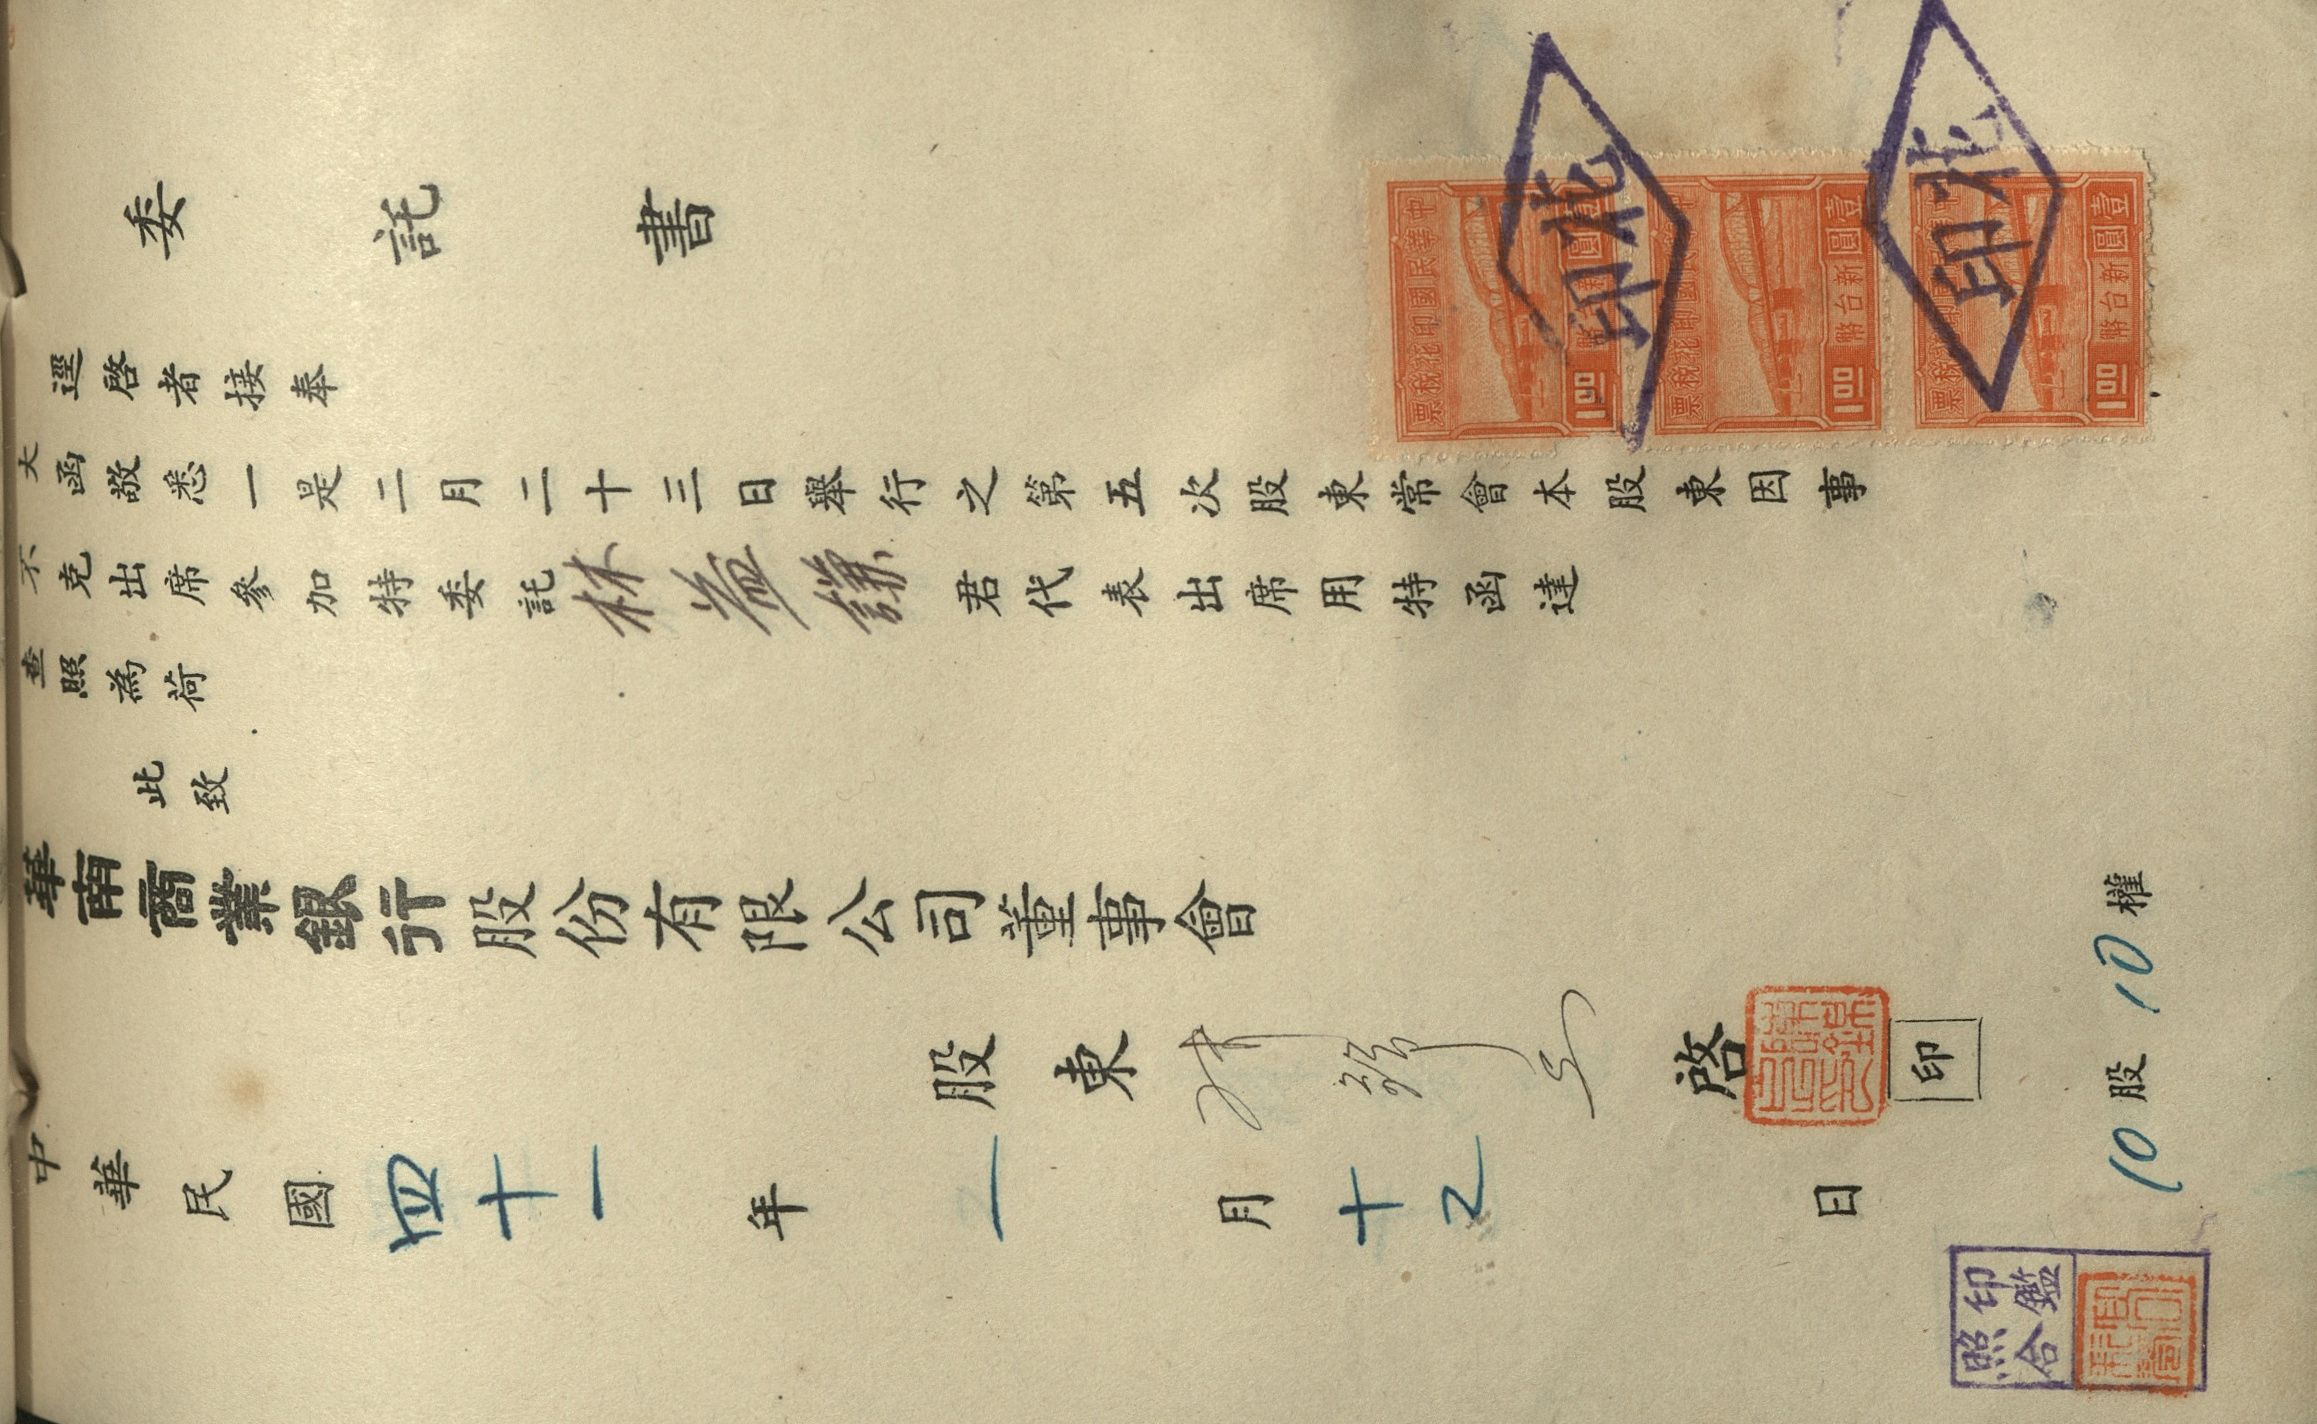 委託書
逕啓者接奉
大函敬悉一是二月二十三日舉行之第五次股東常會本股東因事
不克出席參加特委託林益謙君代表出席用特函達
查照為荷
此致
華南商業銀行股份有限公司董事會
股東 啓
印
中華民國四十一年一月十乙日
10股10權
印鑑照合
中華民國印花稅票
壹圓
新台幣
1.00
中華民國印花稅票
壹圓
新台幣
1.00
中華民國印花稅票
壹圓
新台幣
1.00
北印
北印